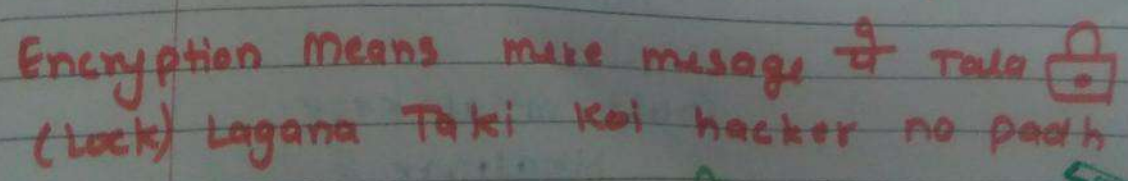 Encryption Means mere mesage पे Tala
(Lock) Lagana Taki Koi hacker no padh